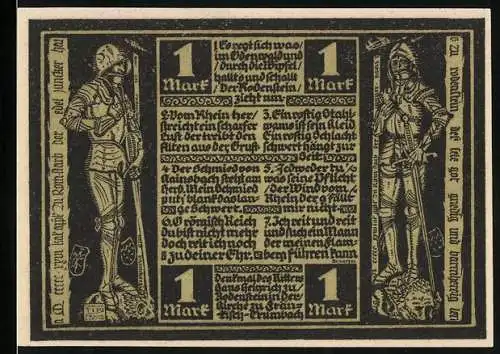 1 Mark
1 Mark
1. Es regt sich was
im Odenwald und
durch die Wipfel
hallts und schallt
Der Rodenstein
zieht um
2. Vom Rhein her
streicht ein scharfer
Luft der treibt den
Alten aus der Gruft
3. Ein rostig Stahl-
wams ist sein Kleid
Ein rostig Schlacht-
schwert hängt zur
Seit
4. Der Schmied von
Gainsbach steht am
Herd. Mein Schmied
putz blank das lan-
ge Schwert
5. Jedweder tu
was seine Pflicht
der Wind vom
Rhein der gfällt
mir nicht
6. O römisch Reich
du bist nicht mehr
doch reit ich noch
zu deiner Ehr.
7. Ich reit und reit
und such ein Mann
der meinen Flam-
berg führen kann
Scheffel
1 Mark
1 Mark
Denkmal des Ritters
Hans Heinrich zu
Rodenstein in der
Kirche zu Fränz-
kisch-Crumbach